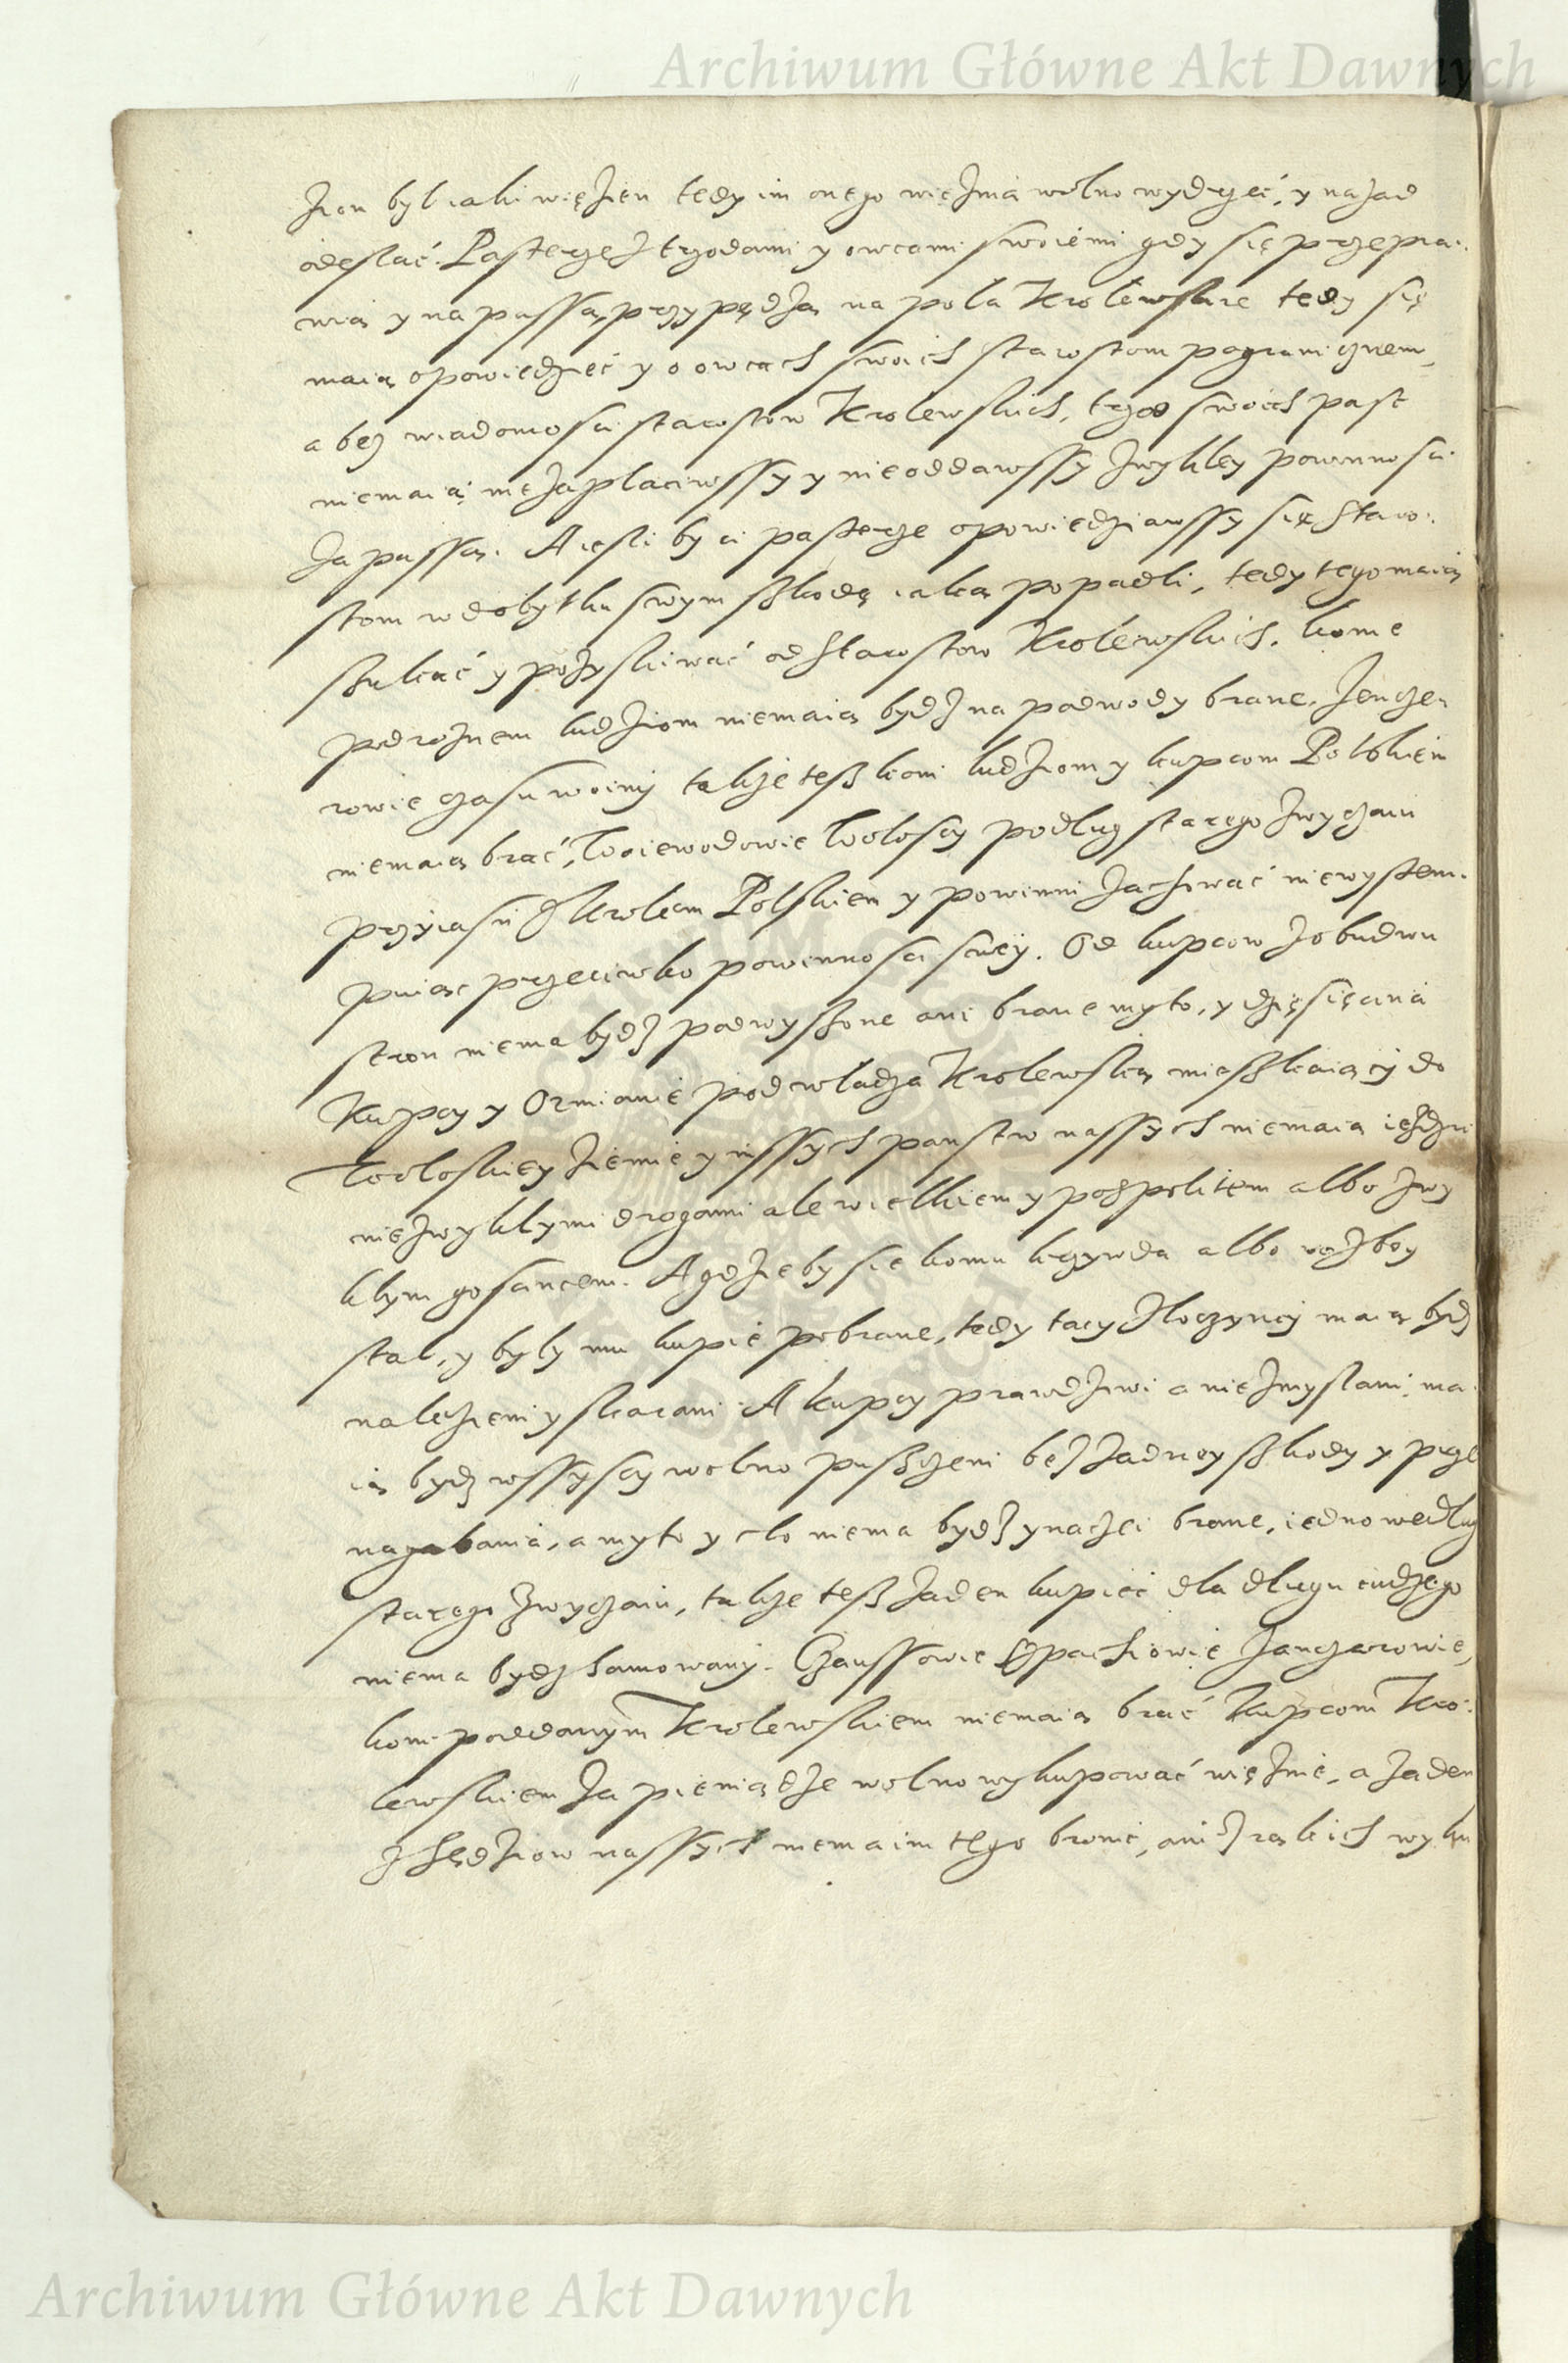 Archiwum Główne Akt Dawnych
zien był iaki więzien tedy im onego więznia wolno wydrzeć, y nazad
odesłać. Pasterze z trzodami y owcami swoiemi gdy się przepra:
wią y na passą przypędzą na pola Krolewskie tedy się
maią opowiedzieć y o owcach swoich starostom pogranicznem
a bez wiadomosci starostow Krolewskich, trzod swoich paść
niemaią nie zapłaciwssy y nieoddawssy zwykłey powinnosci
za passą. A iesli by ci pasterze opowiedziawssy się Staro:
stom w dobytku swym sßkodę iaką popadli, tedy tego maią
sßukać y pozyskiwać od Starostow Krolewskich. konie
podroznem ludziom niemaią bydz na podwody brane. Jencze,
rowie czasu woiny takze teß koni ludziom y kupcom Polskiem
niemaią brać, Woiewodowie Wołoscy podług starego zwyczaiu
przyiazń z Krolem Polskiem y powinni zachować niewystem:
puiąc przeciwko powinnosci swey. Od kupcow z obudwu
stron niema bydz podwyßone ani brane myto, y dziesięcina
Kupcy y Ormianie pod władza Krolewską mießkaiący do
Wołoskiey ziemie y inssych panstw nassych niemaią ieździć
niezwykłymi drogami ale wielkiem y pospolitem albo zwy
kłym gosancem. A gdzieby się komu krzywda albo rozboy
stał, y były mu kupie pobrane, tedy tacy złoczyncy maią bydz
nalezieni y skarani. A kupcy prawdziwi a niezmyslani ma
ią bydz wssyscy wolno pusßczeni bez zadney sßkody y prze
nagabania, a myto y cło niema bydz ynaczei brane, iedno według
starego zwyczaiu, takze teß zaden kupiec dla długu cudzego
niema bydz hamowany. Czaussowie Spachiowie Janczarowie,
koni poddanym Krolewskiem niemaią brać Kupcom Kro:
lewskiem za pieniądze wolno wykupować więznie, a zaden
z Sędziow nassych niema im tego bronić, ani z rąk ich wyku
Archiwum Główne Akt Dawnych